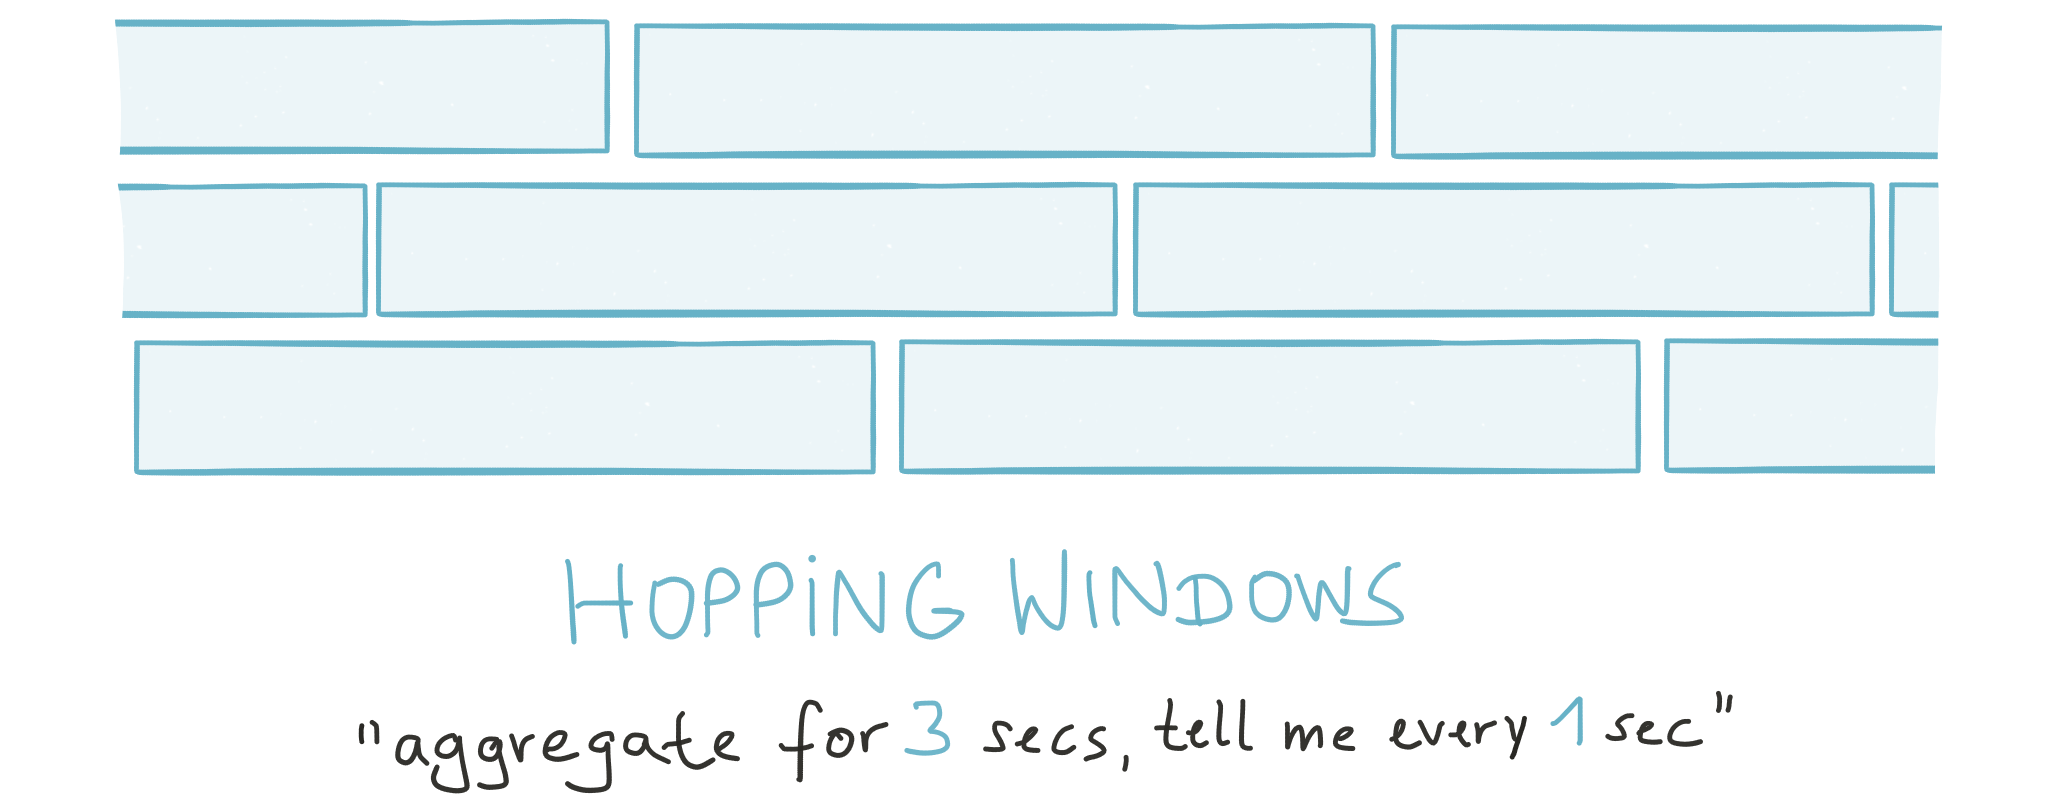 HOPPiNG WINDOWS
"aggregate for 3 secs, tell me every 1 sec"